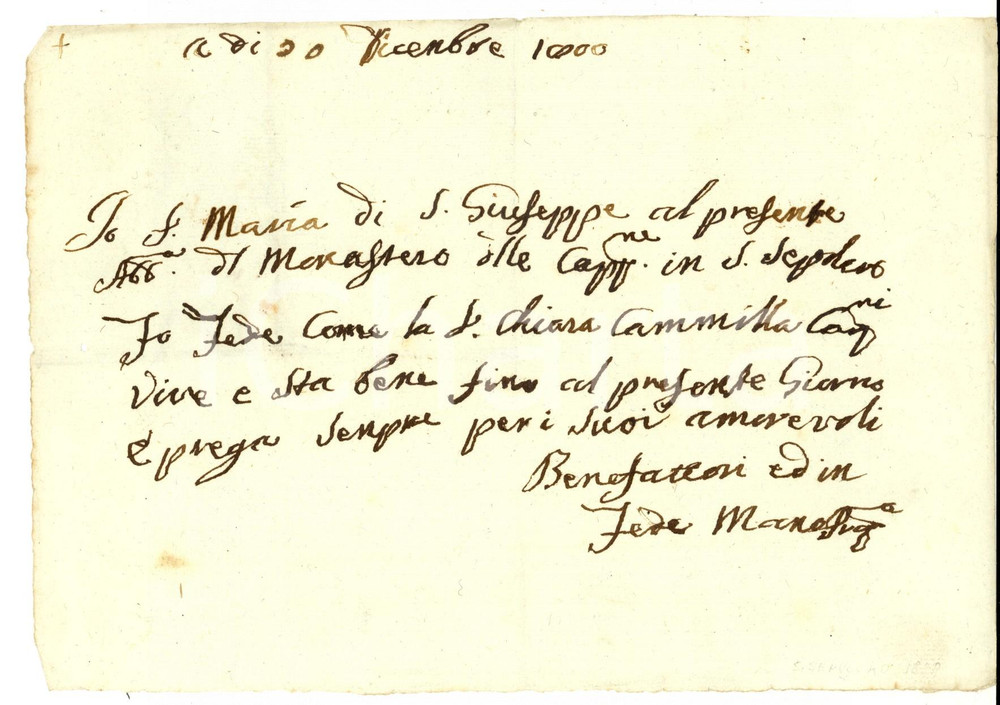 + a di 20 Dicenbre 1800
Io S. Maria di S. Giuseppe al presente
Abb.a dl Monastero dlle Capp.ne in S. Sepolcro
Fo Fede Come la S. Chiara Cammilla Capni
Vive e Sta bene fino al presente Giorno
E prega Senpre per i Suoi amorevoli
Benefattori ed in
Fede Mano